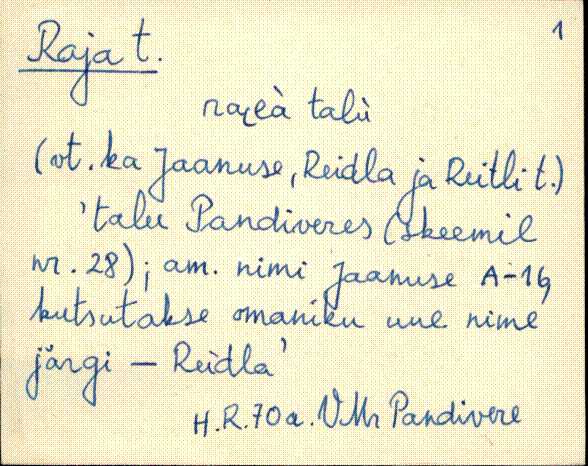 Raja t. 1
talù
(vt. ka Jaanuse, Reidla ja Reitli t.)
'talu Pandiveres (skeemil
nr. 28); am. nimi Jaanuse A-16,
kutsutakse omaniku uue nime
järgi — Reidla'
H.R. 70a. VMr Pandivere